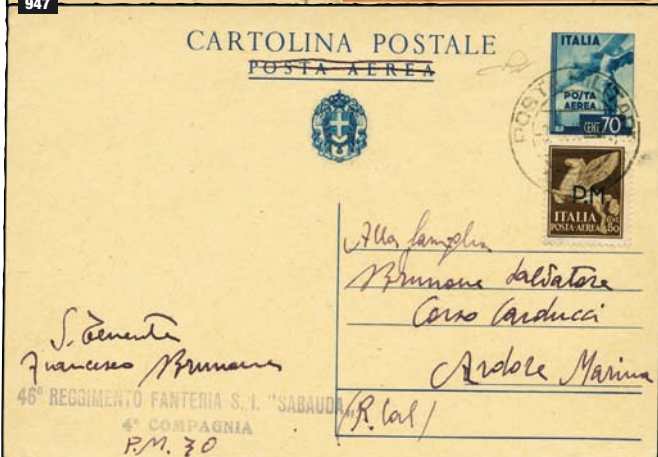 947
CARTOLINA POSTALE
POSTA AEREA
ITALIA
POSTA
AEREA
CENT. 70
POSTA MILITARE
P.M.
ITALIA
POSTA-AEREA
50
Alla famiglia
Brunone Salvatore
Corso Carducci
Ardore Marina
(R. Cal)
S. Tenente
Francesco Brunone
46° REGGIMENTO FANTERIA S. I. "SABAUDA"
4ª COMPAGNIA
P.M. 30